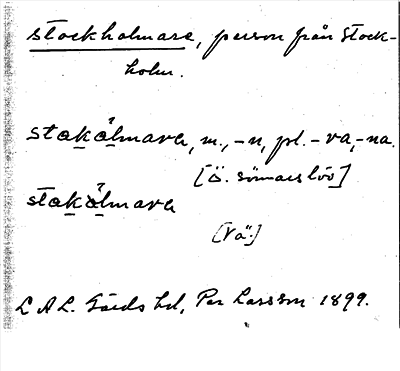 stockholmare, person från Stock-
holm.
stakålmara, m., -n, pl. -ra, -na.
[Ö. sönnarslöv]
stakålmara
[Vä.]
L A L. Gärds hd, Per Larsson 1899.